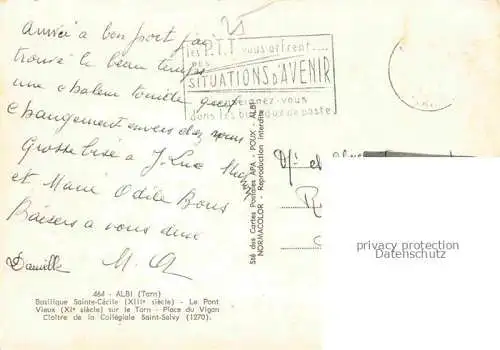 Arrivée a bon port j'ai
trouvé le beau temps
une chaleur quel
changement envers chez vous
Grosse bise a J. Luc
et Marie Odile Bons
Baisers a vous deux
Danielle M. A
les P.T.T vous offrent....
des
SITUATIONS D'AVENIR
renseignez-vous
dans les bureaux de poste
Sté des Cartes Postales APA - POUX - ALBI
NORMACOLOR - Reproduction Interdite
privacy protection
Datenschutz
464 - ALBI (Tarn)
Basilique Sainte-Cécile (XIIIe siècle) - Le Pont
Vieux (XIe siècle) sur le Tarn - Place du Vigan
Cloître de la Collégiale Saint-Salvy (1270).